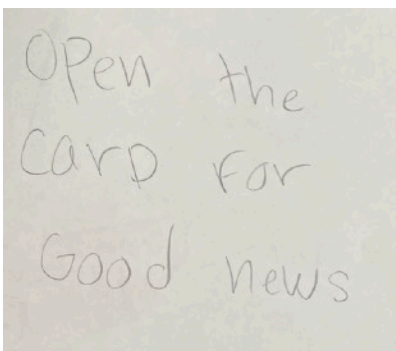 Open the
Card For
Good news